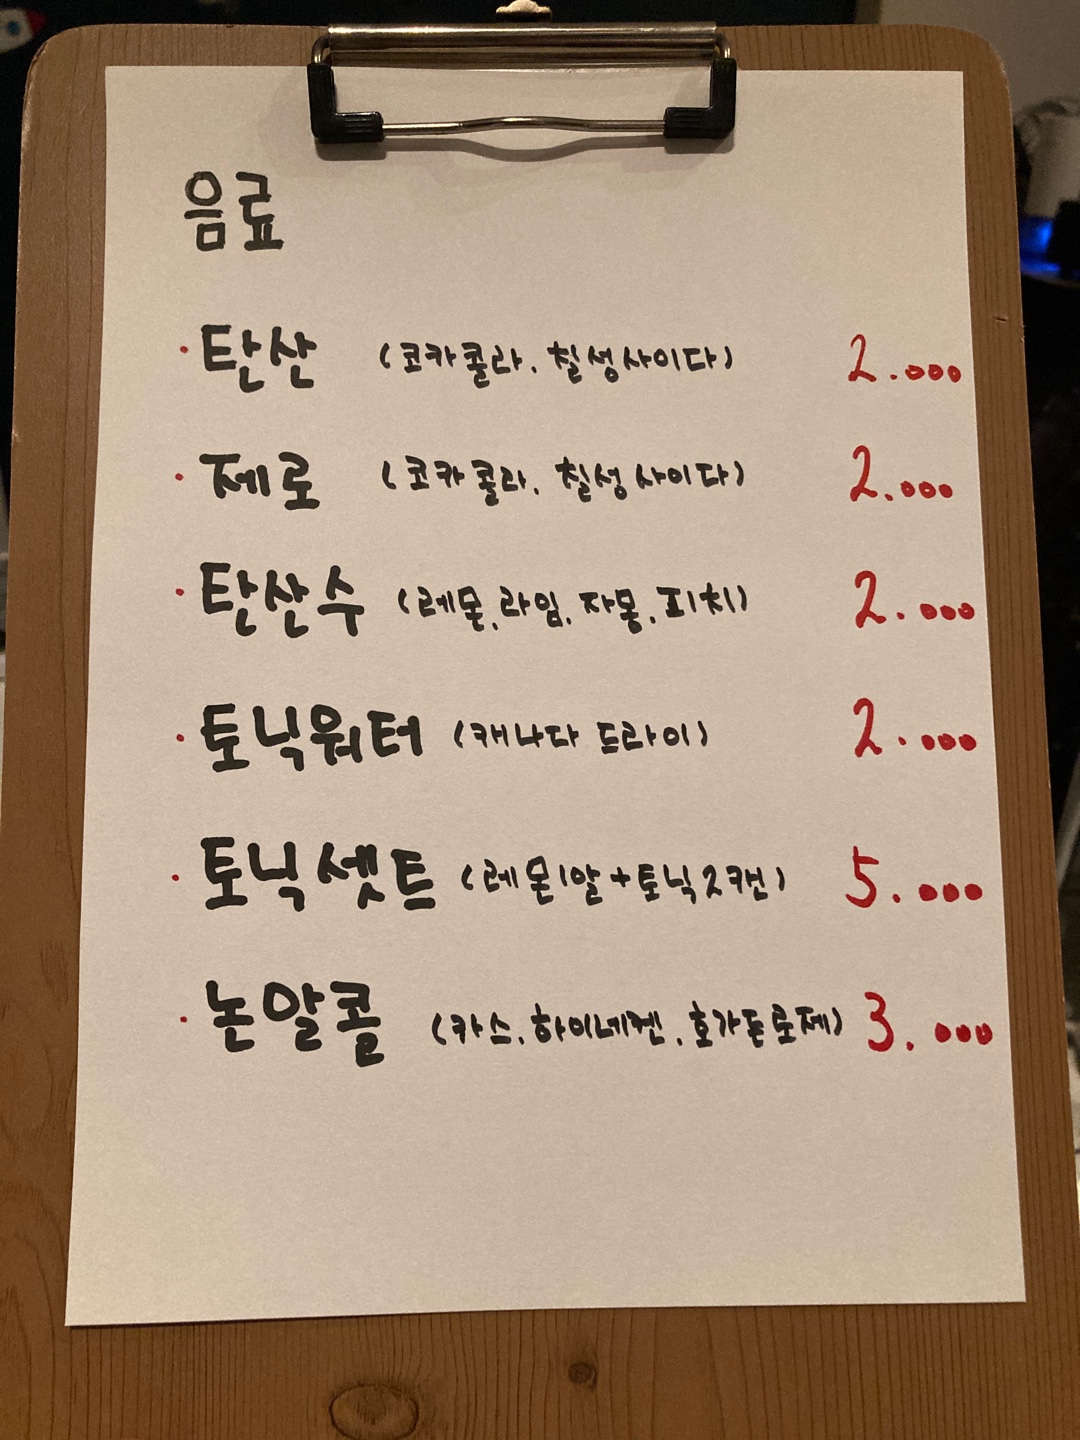 음료
· 탄산 (코카콜라, 칠성사이다) 2.000
· 제로 (코카콜라, 칠성사이다) 2.000
· 탄산수 (레몬,라임,자몽,피치) 2.000
· 토닉워터 (캐나다 드라이) 2.000
· 토닉셋트 (레몬1알+토닉2캔) 5.000
· 논알콜 (카스,하이네켄,호가든로제) 3.000